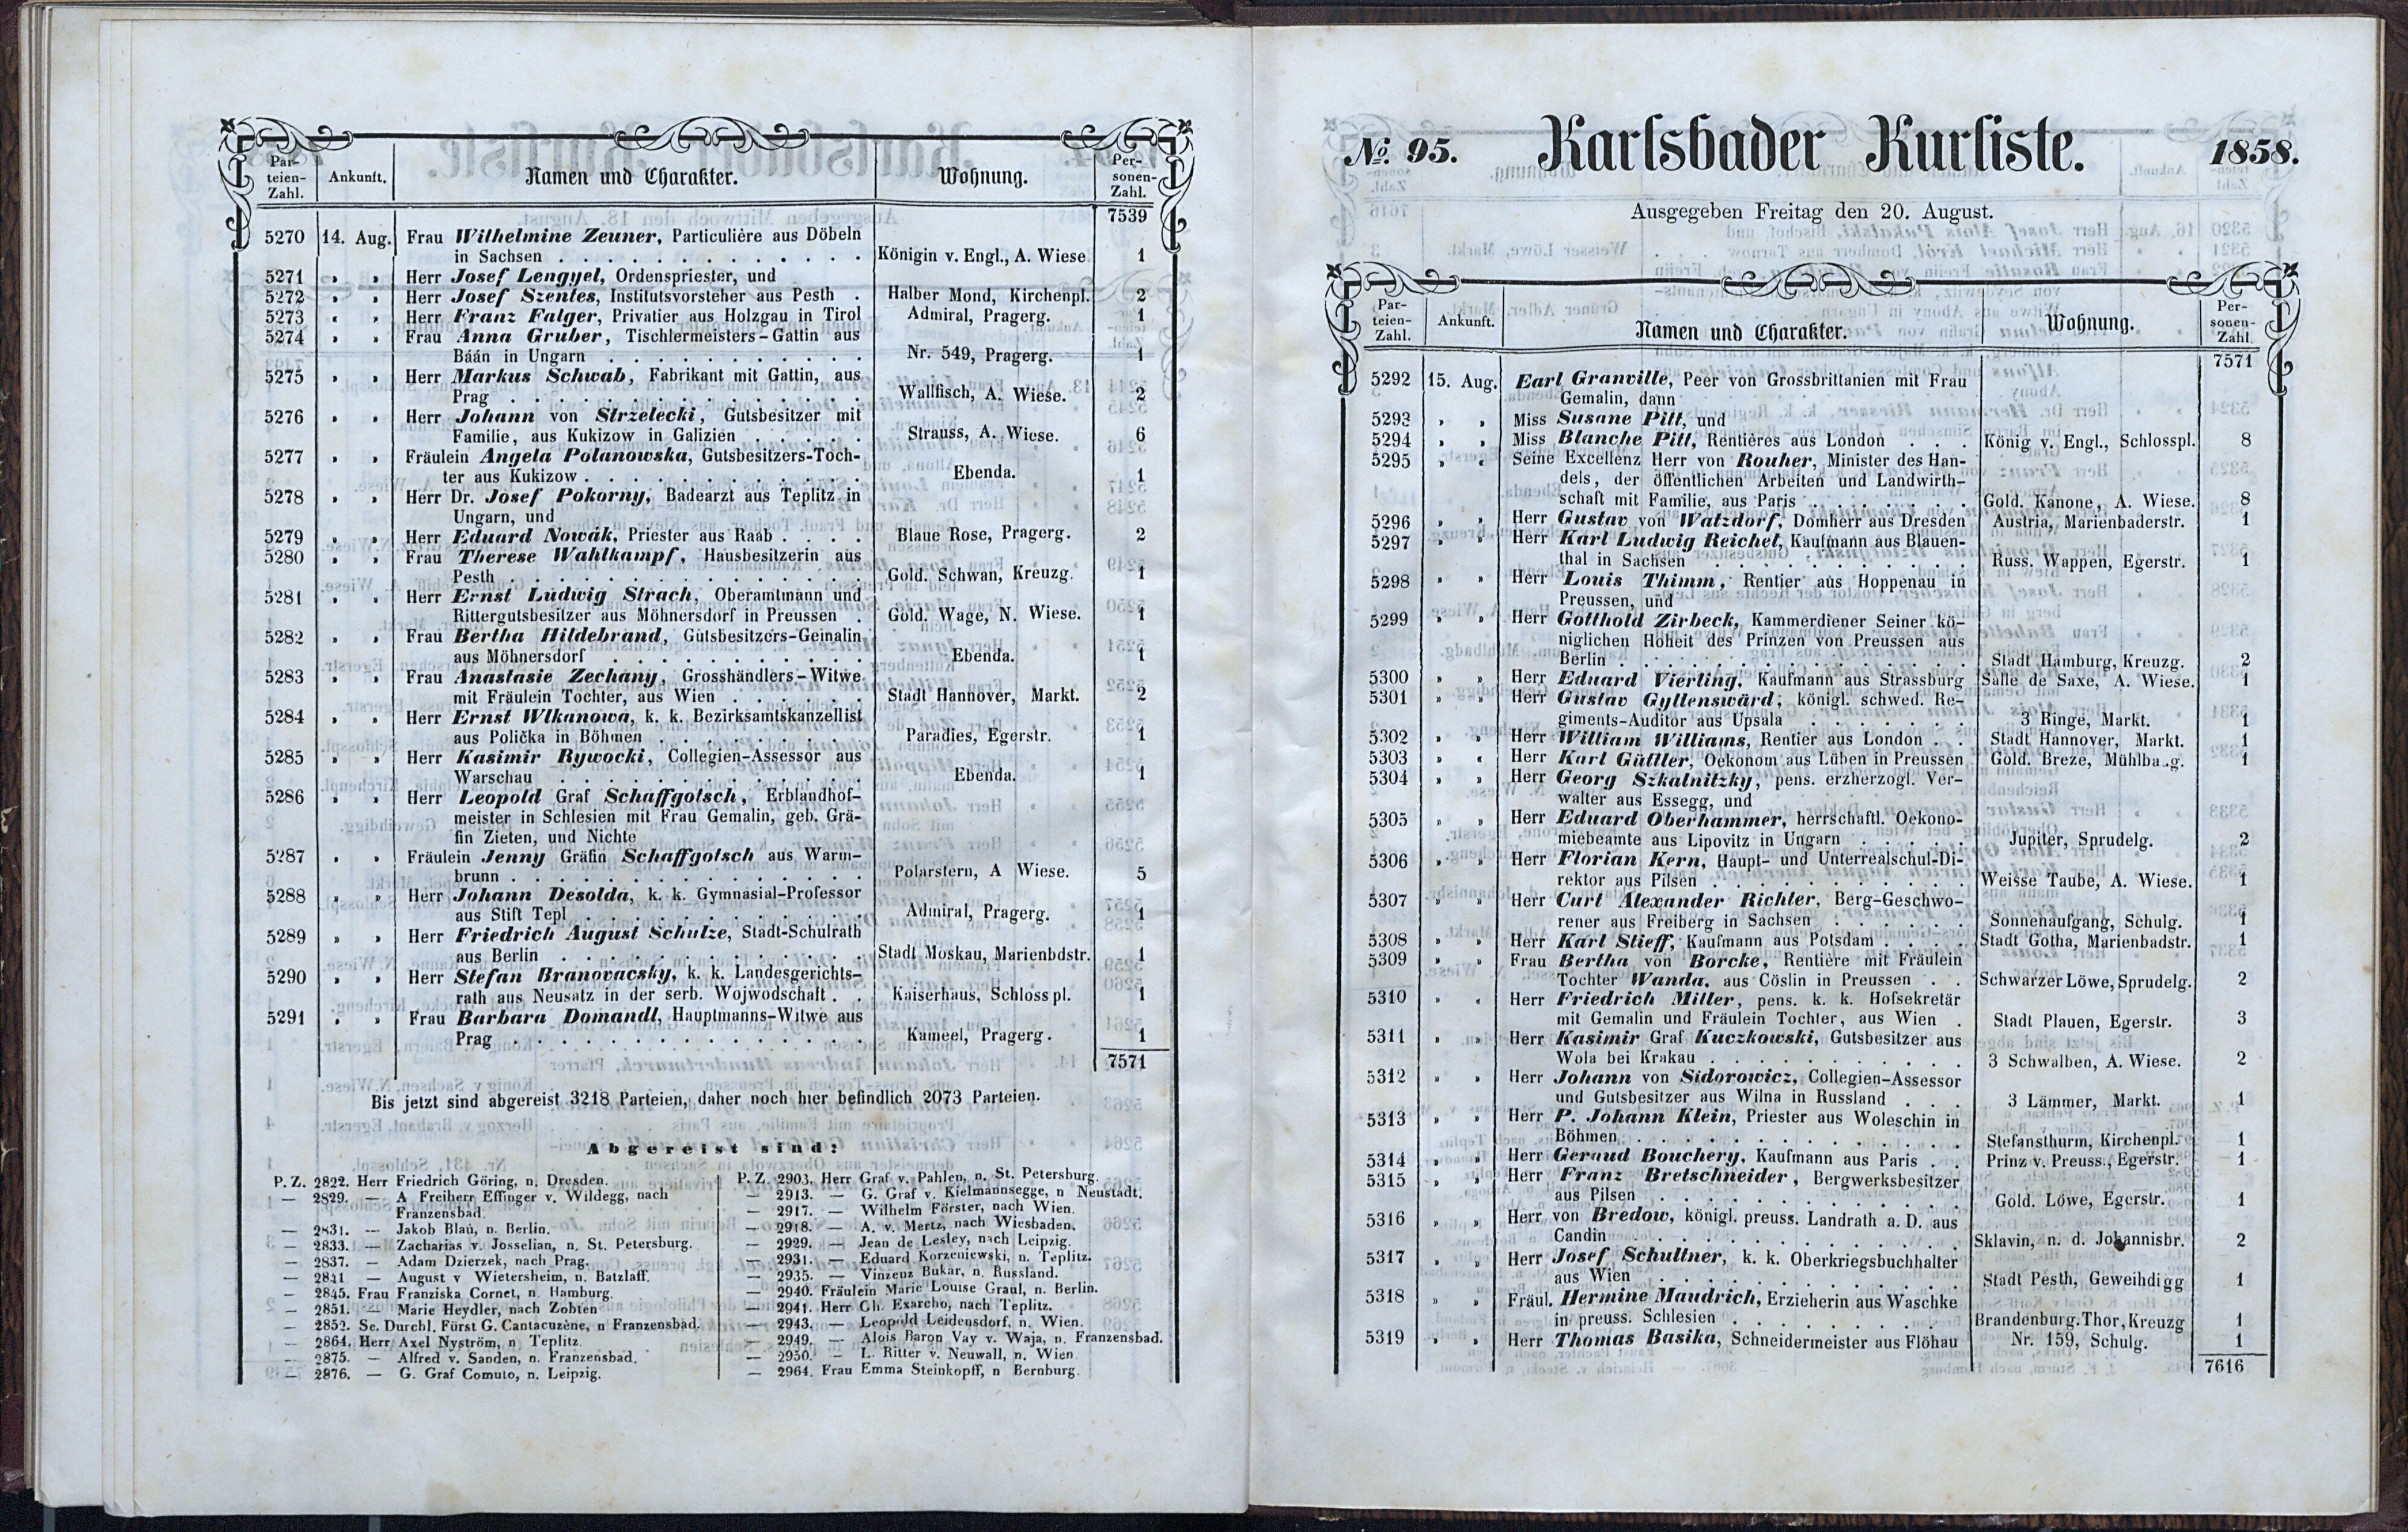 Par-
teien-
Zahl. Ankunft. Namen und Charakter. Wohnung. Per-
sonen-
Zahl.
7539
5270 14. Aug. Frau Wilhelmine Zeuner, Particulière aus Döbeln
in Sachsen . . . . . . . . . . . . . Königin v. Engl., A. Wiese 1
5271 » » Herr Josef Lengyel, Ordenspriester, und
5272 » » Herr Josef Szentes, Institutsvorsteher aus Pesth . Halber Mond, Kirchenpl. 2
5273 « » Herr Franz Falger, Privatier aus Holzgau in Tirol Admiral, Pragerg. 1
5274 » » Frau Anna Gruber, Tischlermeisters-Gattin aus
Báán in Ungarn . . . . . . . . . . . Nr. 549, Pragerg. 1
5275 » » Herr Markus Schwab, Fabrikant mit Gattin, aus
Prag . . . . . . . . . . . . . . . Wallfisch, A. Wiese. 2
5276 » » Herr Johann von Strzelecki, Gutsbesitzer mit
Familie, aus Kukizow in Galizien . . . . . Strauss, A. Wiese. 6
5277 » » Fräulein Angela Polanowska, Gutsbesitzers-Toch-
ter aus Kukizow . . . . . . . . . . . . Ebenda. 1
5278 » » Herr Dr. Josef Pokorny, Badearzt aus Teplitz in
Ungarn, und
5279 » » Herr Eduard Nowák, Priester aus Raab . . . . Blaue Rose, Pragerg. 2
5280 » » Frau Therese Wahlkampf, Hausbesitzerin aus
Pesth . . . . . . . . . . . . . . . Gold. Schwan, Kreuzg. 1
5281 » » Herr Ernst Ludwig Strach, Oberamtmann und
Rittergutsbesitzer aus Möhnersdorf in Preussen . Gold. Wage, N. Wiese. 1
5282 » » Frau Bertha Hildebrand, Gutsbesitzers-Gemalin
aus Möhnersdorf . . . . . . . . . . . Ebenda. 1
5283 » » Frau Anastasie Zechány, Grosshändlers-Witwe
mit Fräulein Tochter, aus Wien . . . . . . Stadt Hannover, Markt. 2
5284 » » Herr Ernst Wlkanowa, k. k. Bezirksamtskanzellist
aus Polička in Böhmen . . . . . . . . . Paradies, Egerstr. 1
5285 » » Herr Kasimir Rywocki, Collegien-Assessor aus
Warschau . . . . . . . . . . . . . . Ebenda. 1
5286 » » Herr Leopold Graf Schaffgotsch, Erblandhof-
meister in Schlesien mit Frau Gemalin, geb. Grä-
fin Zieten, und Nichte
5287 » » Fräulein Jenny Gräfin Schaffgotsch aus Warm-
brunn . . . . . . . . . . . . . . . Polarstern, A Wiese. 5
5288 » » Herr Johann Desolda, k. k. Gymnasial-Professor
aus Stift Tepl . . . . . . . . . . . . Admiral, Pragerg. 1
5289 » » Herr Friedrich August Schulze, Stadt-Schulrath
aus Berlin . . . . . . . . . . . . . Stadt Moskau, Marienbdstr. 1
5290 » » Herr Stefan Branovacsky, k. k. Landesgerichts-
rath aus Neusatz in der serb. Wojwodschaft . . Kaiserhaus, Schlosspl. 1
5291 » » Frau Barbara Domandl, Hauptmanns-Witwe aus
Prag . . . . . . . . . . . . . . . Kameel, Pragerg. 1
7571
Bis jetzt sind abgereist 3218 Parteien, daher noch hier befindlich 2073 Parteien.
Abgereist sind:
P. Z. 2822. Herr Friedrich Göring, n. Dresden.
— 2829. — A Freiherr Effinger v. Wildegg, nach
Franzensbad.
— 2831. — Jakob Blau, n. Berlin.
— 2833. — Zacharias v. Josselian, n. St. Petersburg.
— 2837. — Adam Dzierzek, nach Prag.
— 2841 — August v Wietersheim, n. Batzlaff.
— 2845. Frau Franziska Cornet, n. Hamburg.
— 2851. — Marie Heydler, nach Zobten
— 2852. Se. Durchl. Fürst G. Cantacuzène, n Franzensbad.
— 2864. Herr Axel Nyström, n Teplitz.
— 2875. — Alfred v. Sanden, n. Franzensbad.
— 2876. — G. Graf Comuto, n. Leipzig.
P. Z. 2903. Herr Graf v. Pahlen, n. St. Petersburg.
— 2913. — G. Graf v. Kielmannsegge, n Neustadt.
— 2917. — Wilhelm Förster, nach Wien.
— 2918. — A. v. Mertz, nach Wiesbaden.
— 2929. — Jean de Lesley, nach Leipzig.
— 2931. — Eduard Korzeniewski, n. Teplitz.
— 2935. — Vinzenz Bukar, n. Russland.
— 2940. Fräulein Marie Louise Graul, n. Berlin.
— 2941. Herr Ch. Exarcho, nach Teplitz.
— 2943. — Leopold Leidensdorf, n. Wien.
— 2949. — Alois Baron Vay v. Waja, n. Franzensbad.
— 2950. — L. Ritter v. Neuwall, n. Wien
— 2964. Frau Emma Steinkopff, n Bernburg.
No. 95. Karlsbader Kurliste. 1858.
Ausgegeben Freitag den 20. August.
Par-
teien-
Zahl. Ankunft. Namen und Charakter. Wohnung. Per-
sonen-
Zahl.
7571
5292 15. Aug. Earl Granville, Peer von Grossbrittanien mit Frau
Gemalin, dann
5293 » » Miss Susane Pitt, und
5294 » » Miss Blanche Pitt, Rentières aus London . . . König v. Engl., Schlosspl. 8
5295 » « Seine Excellenz Herr von Rouher, Minister des Han-
dels, der öffentlichen Arbeiten und Landwirth-
schaft mit Familie, aus Paris . . . . . . . Gold. Kanone, A. Wiese. 8
5296 » » Herr Gustav von Watzdorf, Domherr aus Dresden Austria, Marienbaderstr. 1
5297 » » Herr Karl Ludwig Reichel, Kaufmann aus Blauen-
thal in Sachsen . . . . . . . . . . . Russ. Wappen, Egerstr. 1
5298 » » Herr Louis Thimm, Rentier aus Hoppenau in
Preussen, und
5299 » » Herr Gotthold Zirbeck, Kammerdiener Seiner kö-
niglichen Hoheit des Prinzen von Preussen aus
Berlin . . . . . . . . . . . . . . . Stadt Hamburg, Kreuzg. 2
5300 » » Herr Eduard Vierling, Kaufmann aus Strassburg Salle de Saxe, A. Wiese. 1
5301 » » Herr Gustav Gyllenswärd, königl. schwed. Re-
giments-Auditor aus Upsala . . . . . . . 3 Ringe, Markt. 1
5302 » » Herr William Williams, Rentier aus London . . Stadt Hannover, Markt. 1
5303 » « Herr Karl Güttler, Oekonom aus Lüben in Preussen Gold. Breze, Mühlba.g. 1
5304 » » Herr Georg Szkalnitzky, pens. erzherzogl. Ver-
walter aus Essegg, und
5305 » » Herr Eduard Oberhammer, herrschaftl. Oekono-
miebeamte aus Lipovitz in Ungarn . . . . . Jupiter, Sprudelg. 2
5306 » » Herr Florian Kern, Haupt- und Unterrealschul-Di-
rektor aus Pilsen . . . . . . . . . . . Weisse Taube, A. Wiese. 1
5307 » » Herr Curt Alexander Richter, Berg-Geschwo-
rener aus Freiberg in Sachsen . . . . . . Sonnenaufgang, Schulg. 1
5308 » » Herr Karl Stieff, Kaufmann aus Potsdam . . . . Stadt Gotha, Marienbadstr. 1
5309 » » Frau Bertha von Borcke, Rentière mit Fräulein
Tochter Wanda, aus Cöslin in Preussen . . Schwarzer Löwe, Sprudelg. 2
5310 » « Herr Friedrich Miller, pens. k. k. Hofsekretär
mit Gemalin und Fräulein Tochter, aus Wien . Stadt Plauen, Egerstr. 3
5311 » » Herr Kasimir Graf Kuczkowski, Gutsbesitzer aus
Wola bei Krakau . . . . . . . . . . . 3 Schwalben, A. Wiese. 2
5312 » » Herr Johann von Sidorowicz, Collegien-Assessor
und Gutsbesitzer aus Wilna in Russland . . . 3 Lämmer, Markt. 1
5313 » » Herr P. Johann Klein, Priester aus Woleschin in
Böhmen . . . . . . . . . . . . . . Stefansthurm, Kirchenpl. 1
5314 » » Herr Geraud Bouchery, Kaufmann aus Paris . . Prinz v. Preuss., Egerstr. 1
5315 » » Herr Franz Bretschneider, Bergwerksbesitzer
aus Pilsen . . . . . . . . . . . . . Gold. Löwe, Egerstr. 1
5316 » » Herr von Bredow, königl. preuss. Landrath a. D. aus
Candin . . . . . . . . . . . . . . Sklavin, n. d. Johannisbr. 2
5317 » » Herr Josef Schultner, k. k. Oberkriegsbuchhalter
aus Wien . . . . . . . . . . . . . Stadt Pesth, Geweihdigg 1
5318 » » Fräul. Hermine Maudrich, Erzieherin aus Waschke
in preuss. Schlesien . . . . . . . . . . Brandenburg. Thor, Kreuzg 1
5319 » » Herr Thomas Basika, Schneidermeister aus Flöhau Nr. 159, Schulg. 1
7616